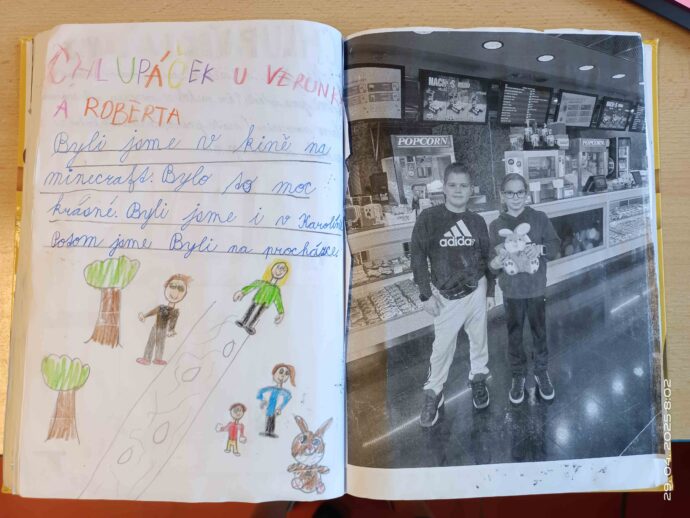 CHLUPÁČEK U VERUNKY
A ROBERTA
Byli jsme v kině na
minecraft. Bylo to moc
krásné. Byli jsme i v Karolině
Potom jsme Byli na procházce.
NACHOS
POPCORN
POPCORN
adidas
29.04.2025 8:02